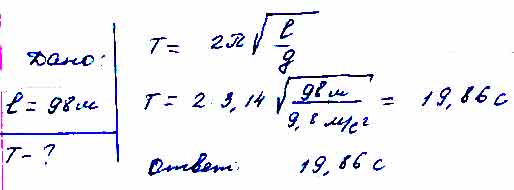 Дано:
l = 98м
T - ?
T = 2π√(l/g)
T = 2 · 3,14 √(98м / 9,8 м/с²) = 19,86 с
Ответ: 19,86 с